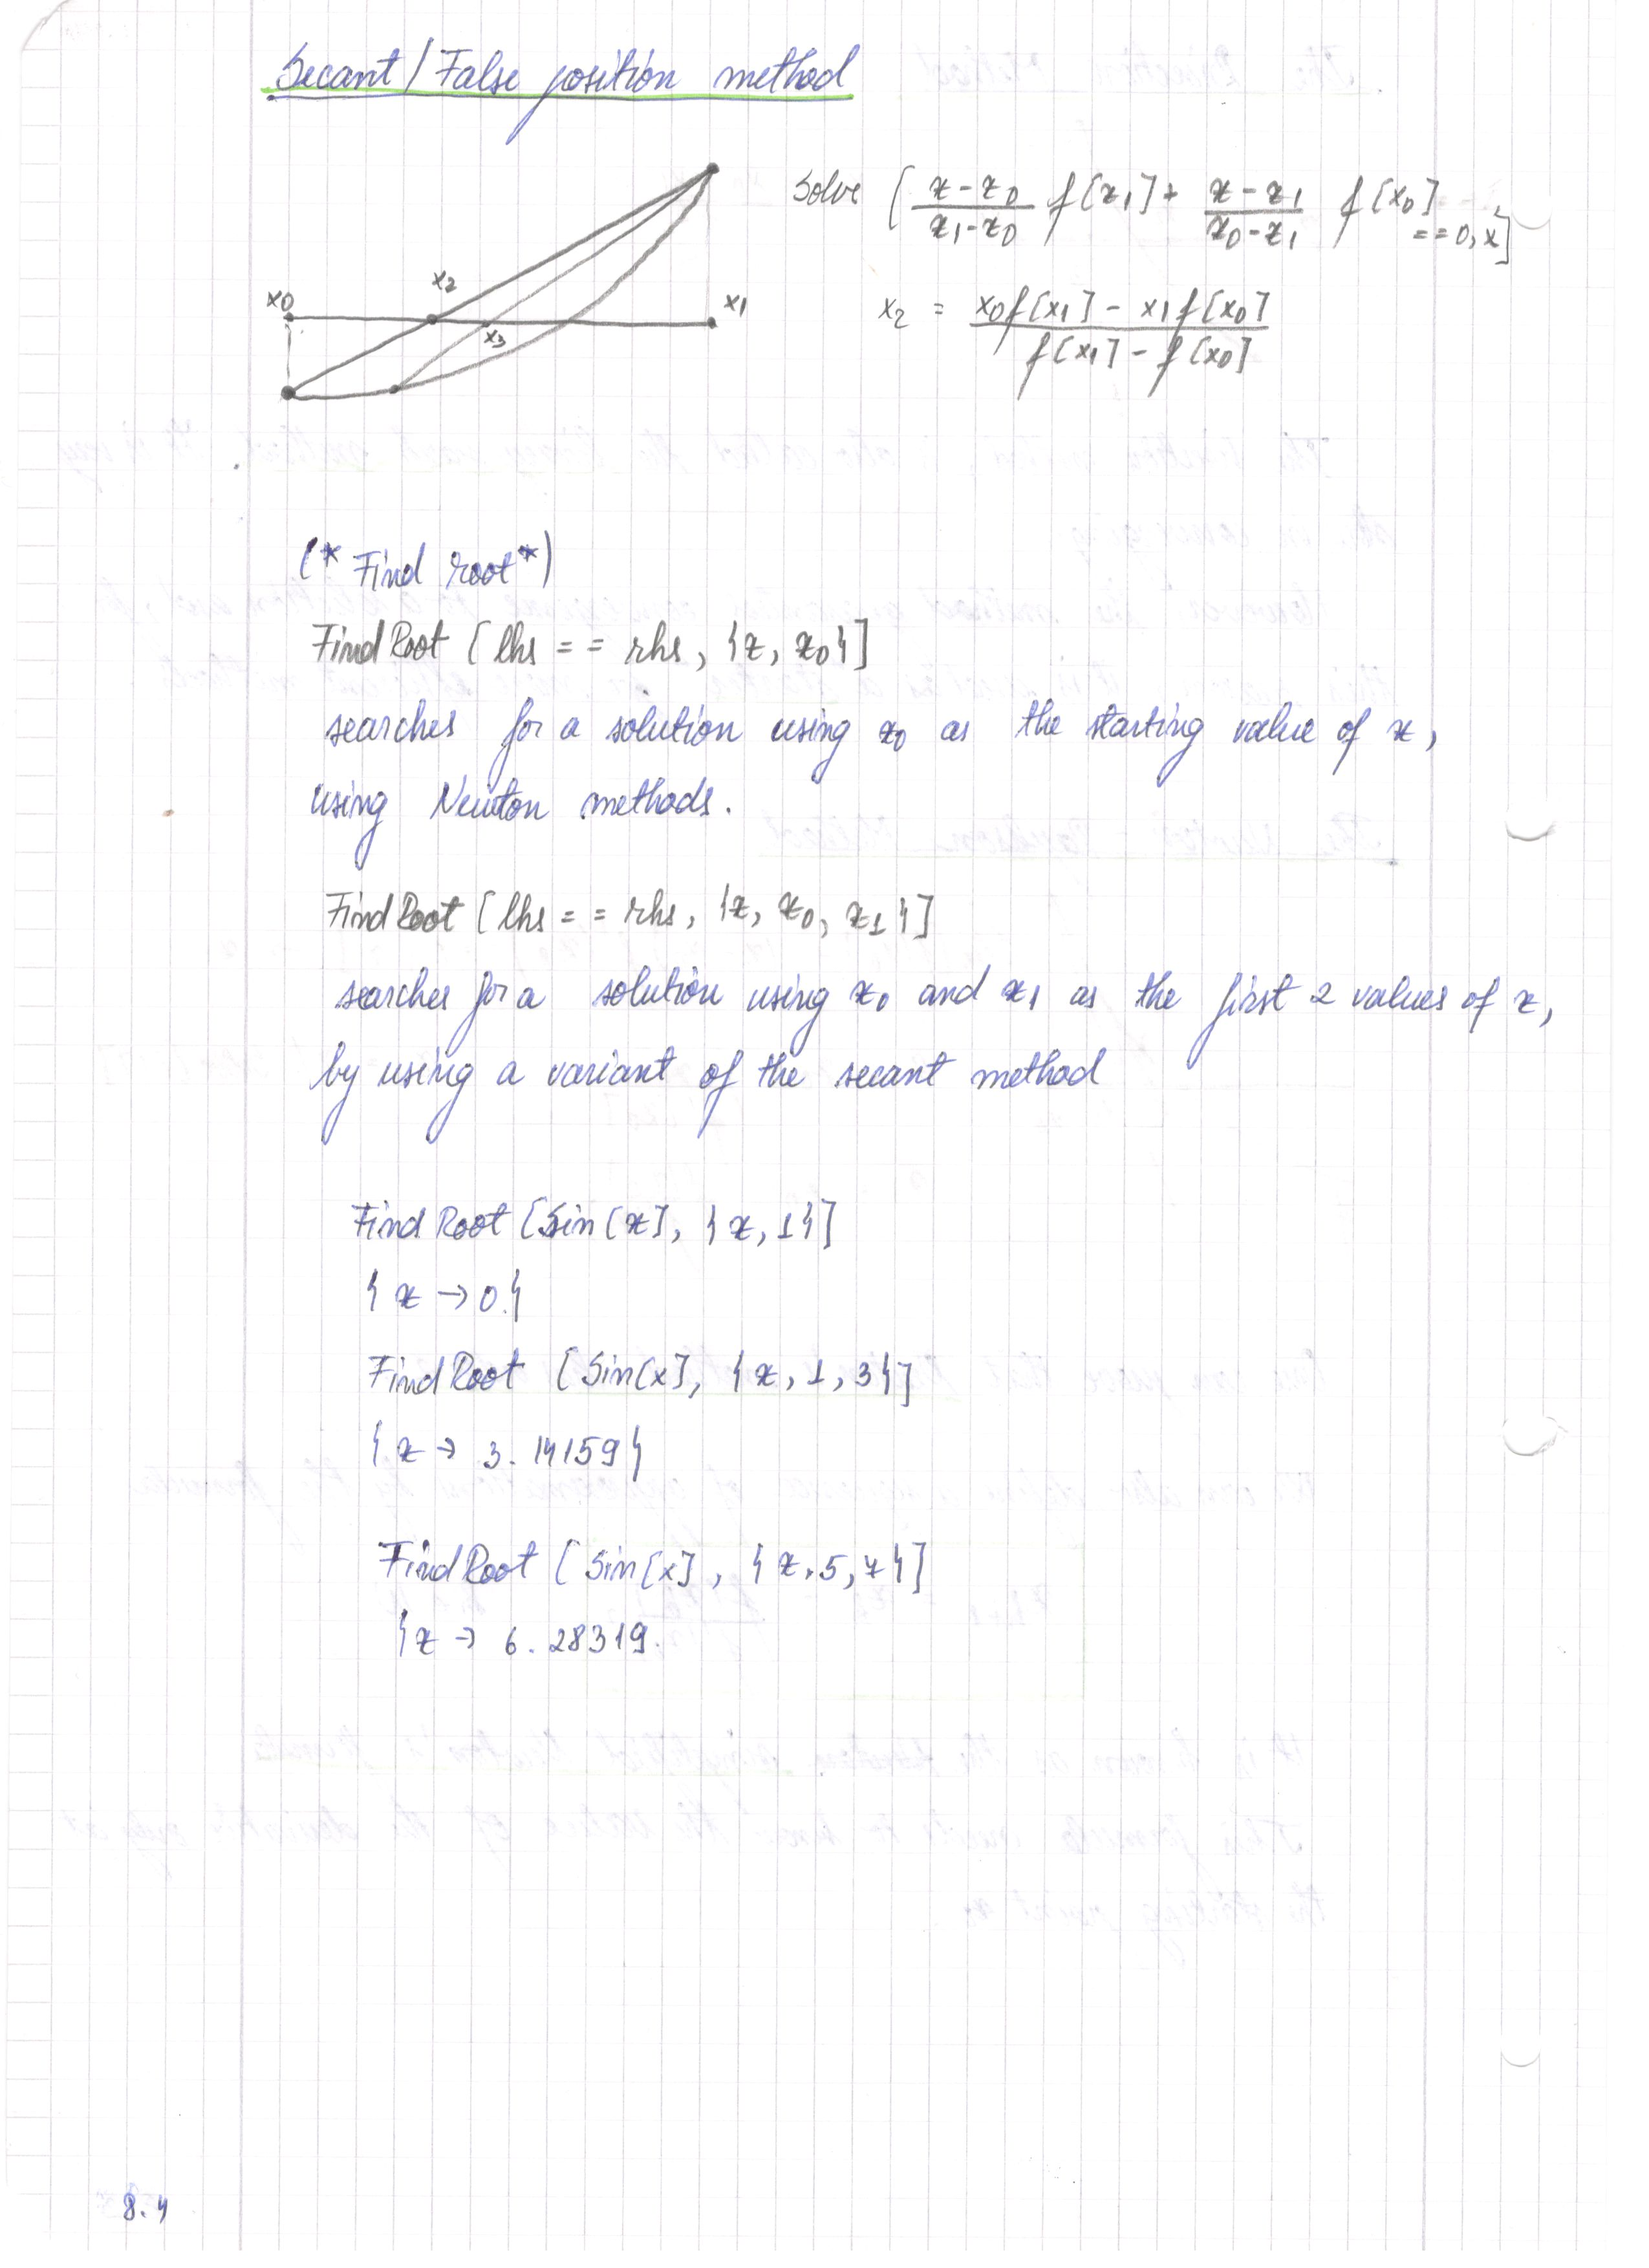 Secant / False position method
Solve [ (x - x0)/(x1 - x0) f[x1] + (x - x1)/(x0 - x1) f[x0] == 0, x]
x0
x2
x3
x1
x2 = (x0 f[x1] - x1 f[x0]) / (f[x1] - f[x0])
(* Find root *)
FindRoot [lhs == rhs, {x, x0}]
searches for a solution using x0 as the starting value of x,
using Newton methods.
FindRoot [lhs == rhs, {x, x0, x1}]
searches for a solution using x0 and x1 as the first 2 values of x,
by using a variant of the secant method
FindRoot [Sin[x], {x, 1}]
{x → 0.}
FindRoot [Sin[x], {x, 1, 3}]
{x → 3.14159}
FindRoot [Sin[x], {x, 5, 7}]
{x → 6.28319.
8.4